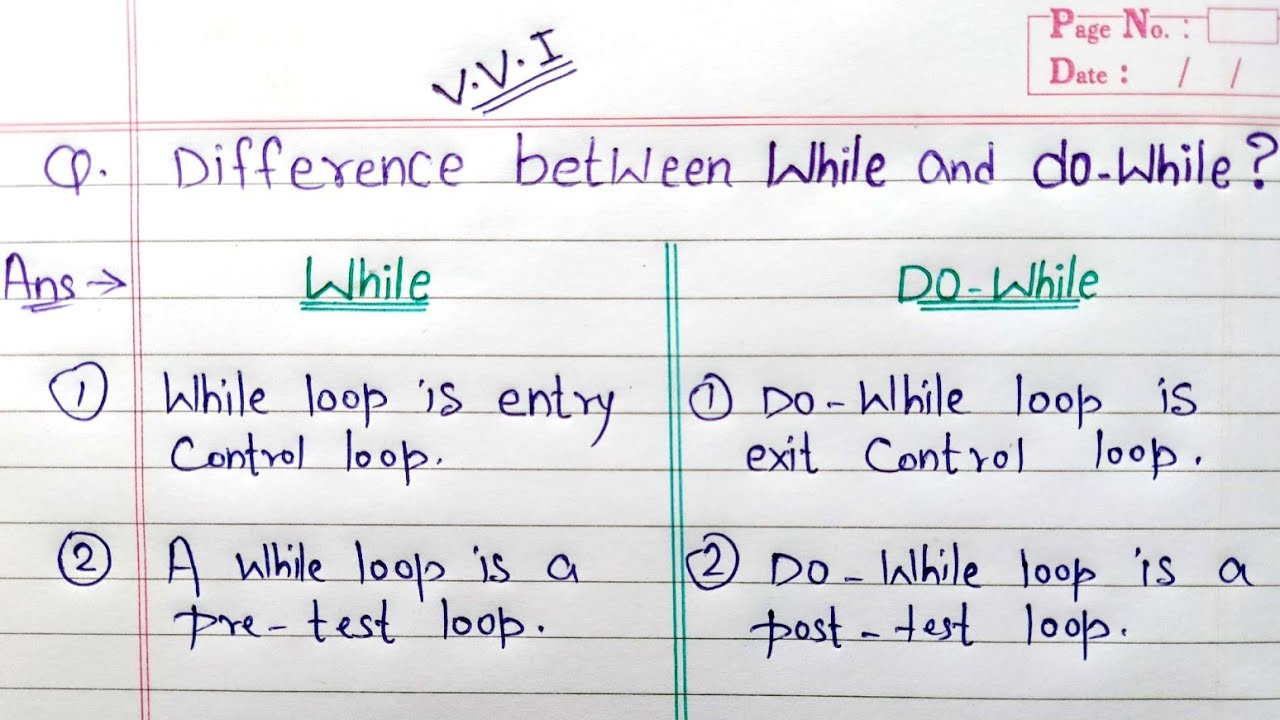 Page No. :
Date : / /
V.V.I
Q. Difference between While and do-While?
Ans → While DO-While
① While loop is entry
Control loop.
① DO-While loop is
exit Control loop.
② A While loop is a
pre-test loop.
② DO-While loop is a
post-test loop.